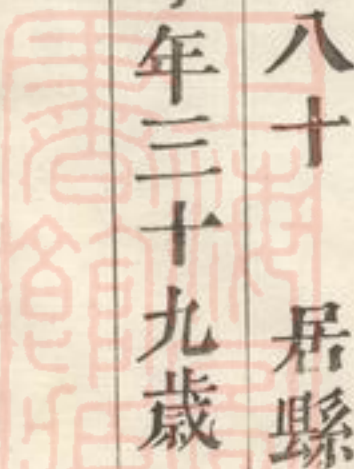 八十 居縣
年三十九歲